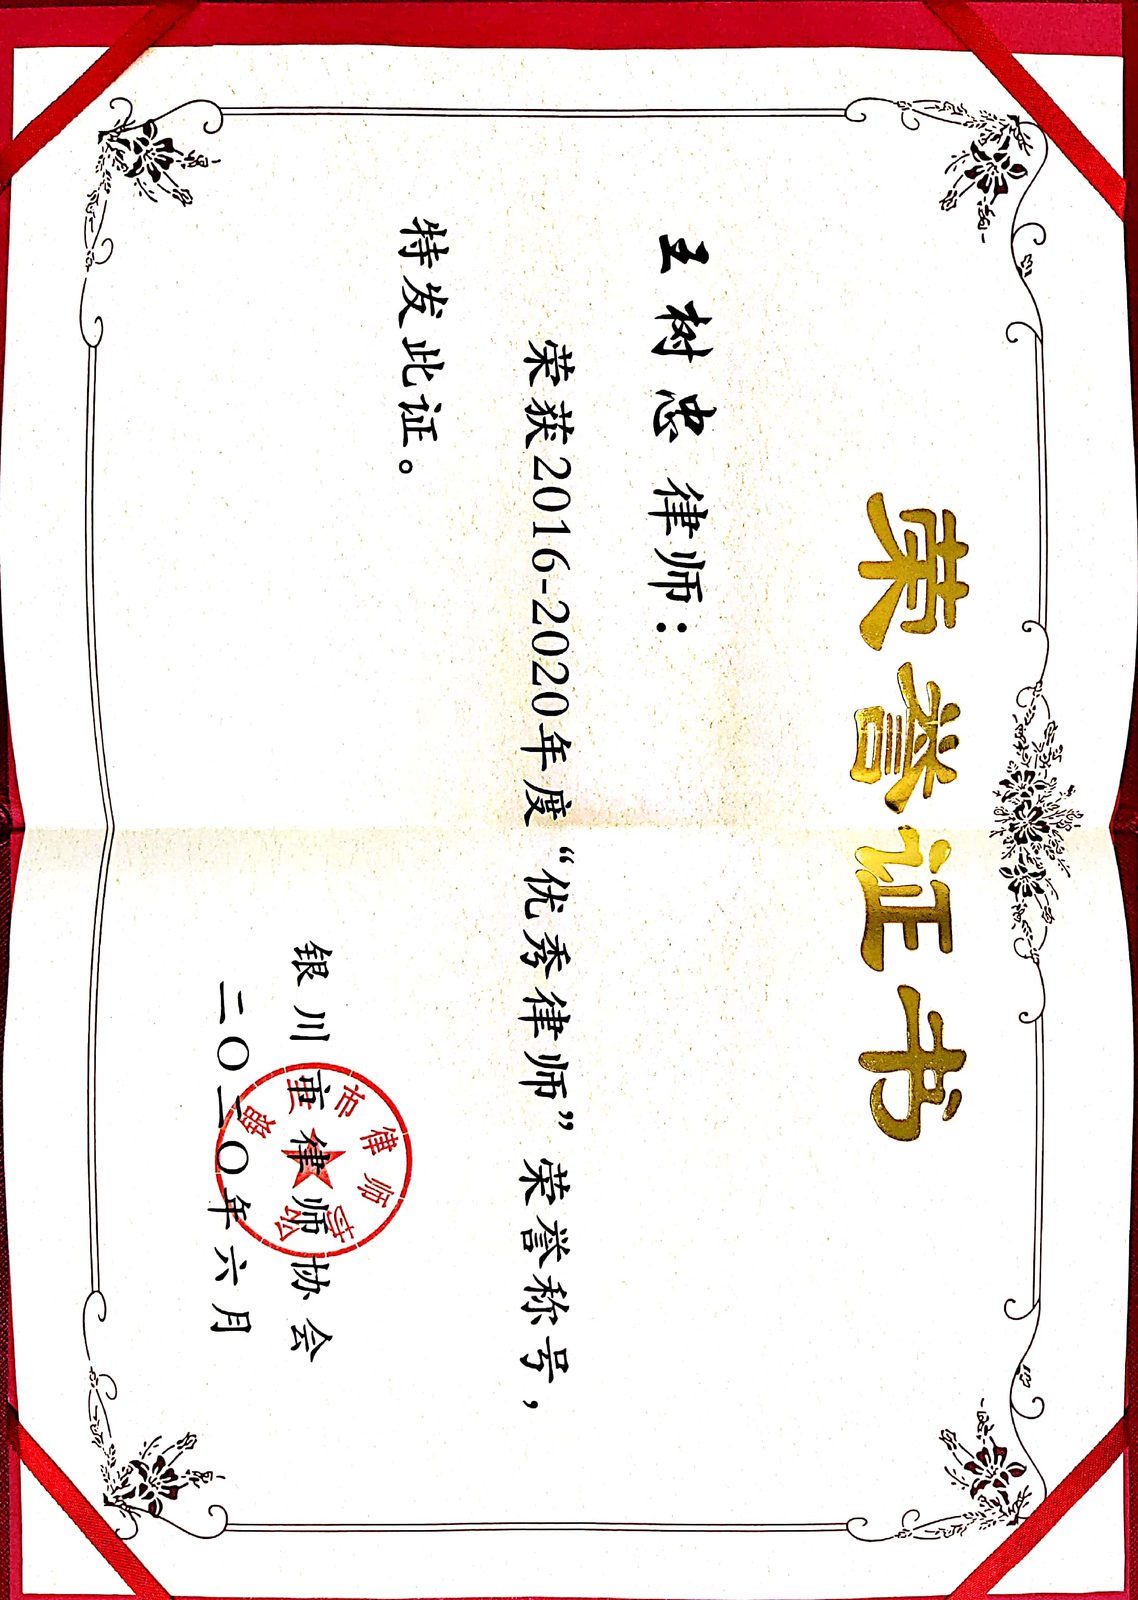 荣誉证书
王树忠律师：
荣获2016-2020年度“优秀律师”荣誉称号，
特发此证。
银川市律师协会
二〇二〇年六月